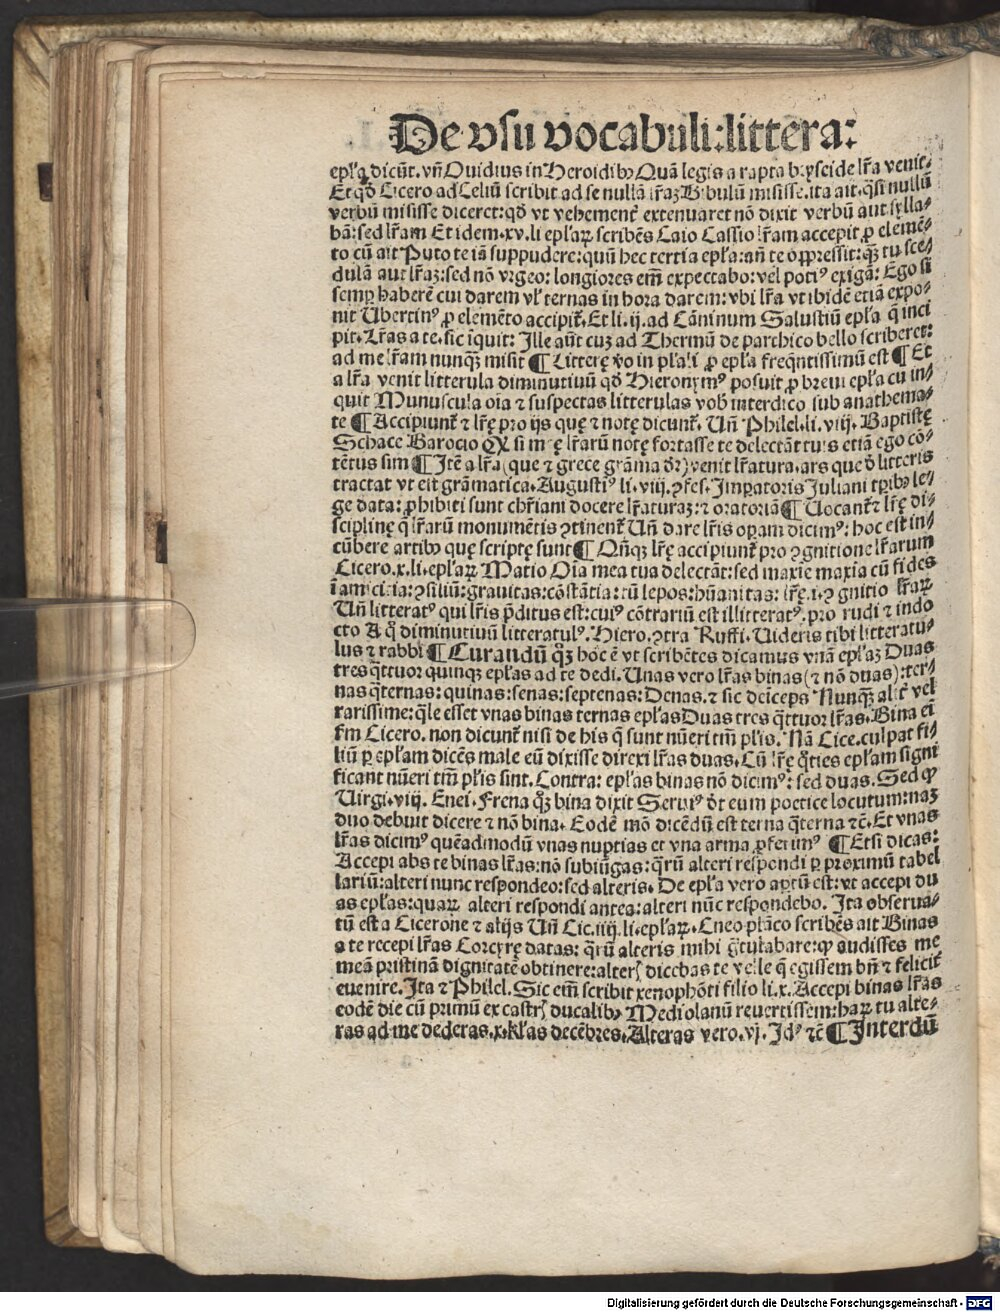 De vsu vocabuli: littera:
epl'a dicūt. vn̄ Ouidius in Heroidibꝫ Quā legis a rapta bryseide lr̄a venit.
Et qd̄ Cicero ad Celiū scribit ad se nullā lr̄aꝫ Bibulū misisse. ita ait. qsi nullū
verbū misisse diceret: qd̄ vt vehement̄ extenuaret nō dixit verbū aut sylla⸗
bā: sed lr̄am Et idem .xv. li epl'aꝝ scribēs Caio Cassio lr̄am accepit ꝓ elemē⸗
to cū ait Puto te iā suppudere: quū hec tertia epl'a: an̄ te oppressit: qꝫ tu sce⸗
dulā aut lr̄aꝫ: sed nō vrgeo: longiores em̄ expectabo: vel potiꝰ exigā: Ego si
semp haberē cui darem vl' ternas in hora darem: vbi lr̄a vt ibidē etiā expo⸗
nit Ubertinꝰ ꝓ elemēto accipit̄. Et li. ij. ad Cāninum Salustiū epl'a q̄ inci
pit. Lr̄as a te. sic īquit: Ille aūt cuꝫ ad Thermū de parthico bello scriberet:
ad me lr̄am nunqꝫ misit ¶ Litterę ꝟo in pl'ali ꝓ epl'a freqn̄tissimū est ¶ Et
a lr̄a venit litterula diminutiuū qd̄ Hieronymꝰ posuit ꝓ breui epl'a cū in⸗
quit Munuscula oīa ⁊ suspectas litterulas vob̄ interdico sub anathema⸗
te ¶ Accipiunt̄ ⁊ lr̄ę pro ijs que ⁊ notę dicunt̄. Un̄ Philel. li. viij. Baptistę
Schace Barocio Qꝫ si męę lr̄arū notę fortasse te delectāt tuis etiā ego cō⸗
tētus sim ¶ Itē a lr̄a (que ⁊ grece grāma dr̄) venit lr̄atura. ars que d̄ litteris
tractat vt est grāmatica. Augustiꝰ li. viij. ꝯfes. Impatoris Juliani tpibꝫ le⸗
ge data: ꝓhibiti sunt chr̄iani docere lr̄aturaꝫ: ⁊ oratoriā ¶ Uocant̄ ⁊ lr̄ę di⸗
sciplinę q̄ lr̄arū monumētis ꝯtinent̄ Un̄ dare lr̄is opam dicimꝰ: hoc est in⸗
cūbere artibꝫ quę scriptę sunt ¶ Qn̄qꝫ lr̄ę accipiunt̄ pro ꝯgnitione lr̄arum
Cicero .x. li. epl'aꝝ Matio Oīa mea tua delectāt: sed maxīe maxīa cū fides
ī amicicia: ꝯsiliū: grauitas: cōstātia: tū lepos: hūanitas: lr̄ę .i. ꝯgnitio lr̄aꝝ
Un̄ litteratꝰ qui lr̄is p̄ditus est: cuiꝰ cōtrariū est illitteratꝰ. pro rudi ⁊ indo
cto A q̄ diminutiuū litteratulꝰ. Hiero. ꝯtra Ruffi. Uideris tibi litteratu⸗
lus ⁊ rabbi ¶ Curandū qꝫ hoc ē vt scribētes dicamus vnā epl'aꝫ Duas
tres qttuor quinqꝫ epl'as ad te dedi. Unas vero lr̄as binas (⁊ nō duas): ter⸗
nas qternas: quinas: senas: septenas: Denas. ⁊ sic deīceps Nunqꝫ alit̄ vel
rarissime: qle esset vnas binas ternas epl'as Duas tres qttuor lr̄as. Bina ei
fm̄ Cicero. non dicunt̄ nisi de his q̄ sunt nūeri tm̄ pl'is. Nā Cice. culpat fi⸗
liū ꝑ epl'am dicēs male eū dixisse direxi lr̄as duas. Cū lr̄ę qties epl'am signi
ficant nūeri tm̄ pl'is sint. Contra: epl'as binas nō dicimꝰ: sed duas. Sed ꝙ
Uirgi. viij. Enei. Frena qꝫ bina dixit Seruiꝰ dt̄ eum poetice locutum: naꝫ
duo debuit dicere ⁊ nō bina. Eodē mō dicēdū est terna qterna ⁊c̄. Et vnas
lr̄as dicimꝰ quēadmodū vnas nuptias et vna arma ꝓferimꝰ ¶ Etsi dicas:
Accepi abs te binas lr̄as: nō subiūgas: qrū alteri respondi ꝑ proximū tabel
lariū: alteri nunc respondeo: sed alteris. De epl'a vero aptū est: vt accepi du
as epl'as: quaꝝ alteri respondi antea: alteri nūc respondebo. Ita obserua⸗
tū est a Cicerone ⁊ alijs Un̄ Cic. iiij. li. epl'aꝝ. Cneo plāco scribēs ait Binas
a te recepi lr̄as Corcyrę datas: qrū alteris mihi gratulabare: ꝙ audisses me
meā pristinā dignitatē obtinere: alter̄ dicebas te velle q̄ egissem bn̄ ⁊ felicit̄
euenire. Ita ⁊ Philel. Sic em̄ scribit xenophōti filio li. x. Accepi binas lr̄as
eodē die cū primū ex castr̄ ducalibꝫ Mediolanū reuertissem: haꝝ tu alte⸗
ras ad me dederas .x. kl'as decēbres. Alteras vero .vj. Idꝰ ⁊c̄ ¶ Interdū
Digitalisierung gefördert durch die Deutsche Forschungsgemeinschaft - DFG